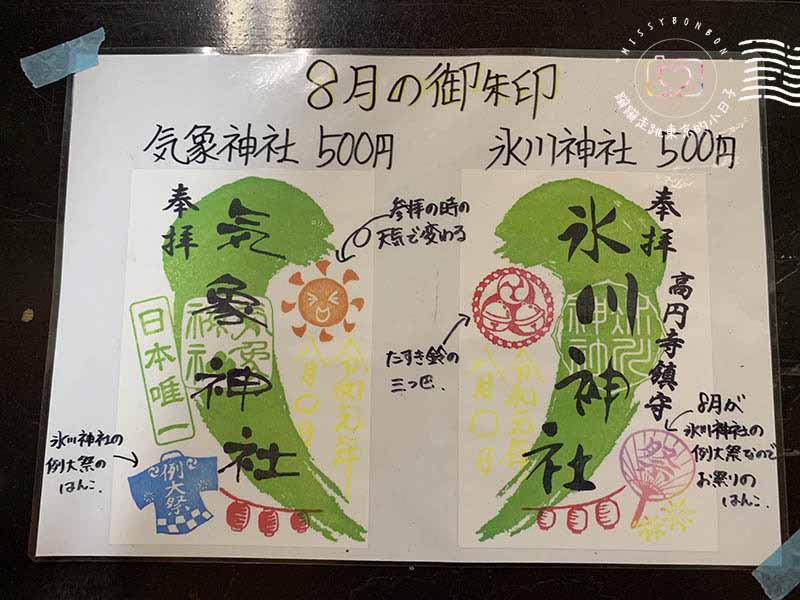 MISSYBONBON
蹦蹦走跳東京的小日子
8月の御朱印
気象神社 500円
氷川神社 500円
奉拝
気象神社
日本唯一
参拝の時の
天気で変わる
令和元年
八月〇日
氷川神社の
例大祭の
はんこ
例大祭
奉拝
氷川神社
高円寺鎮守
たすき鈴の
三つ巴.
令和元年
八月〇日
祭
8月が
氷川神社の
例大祭なので
お祭りの
はんこ.